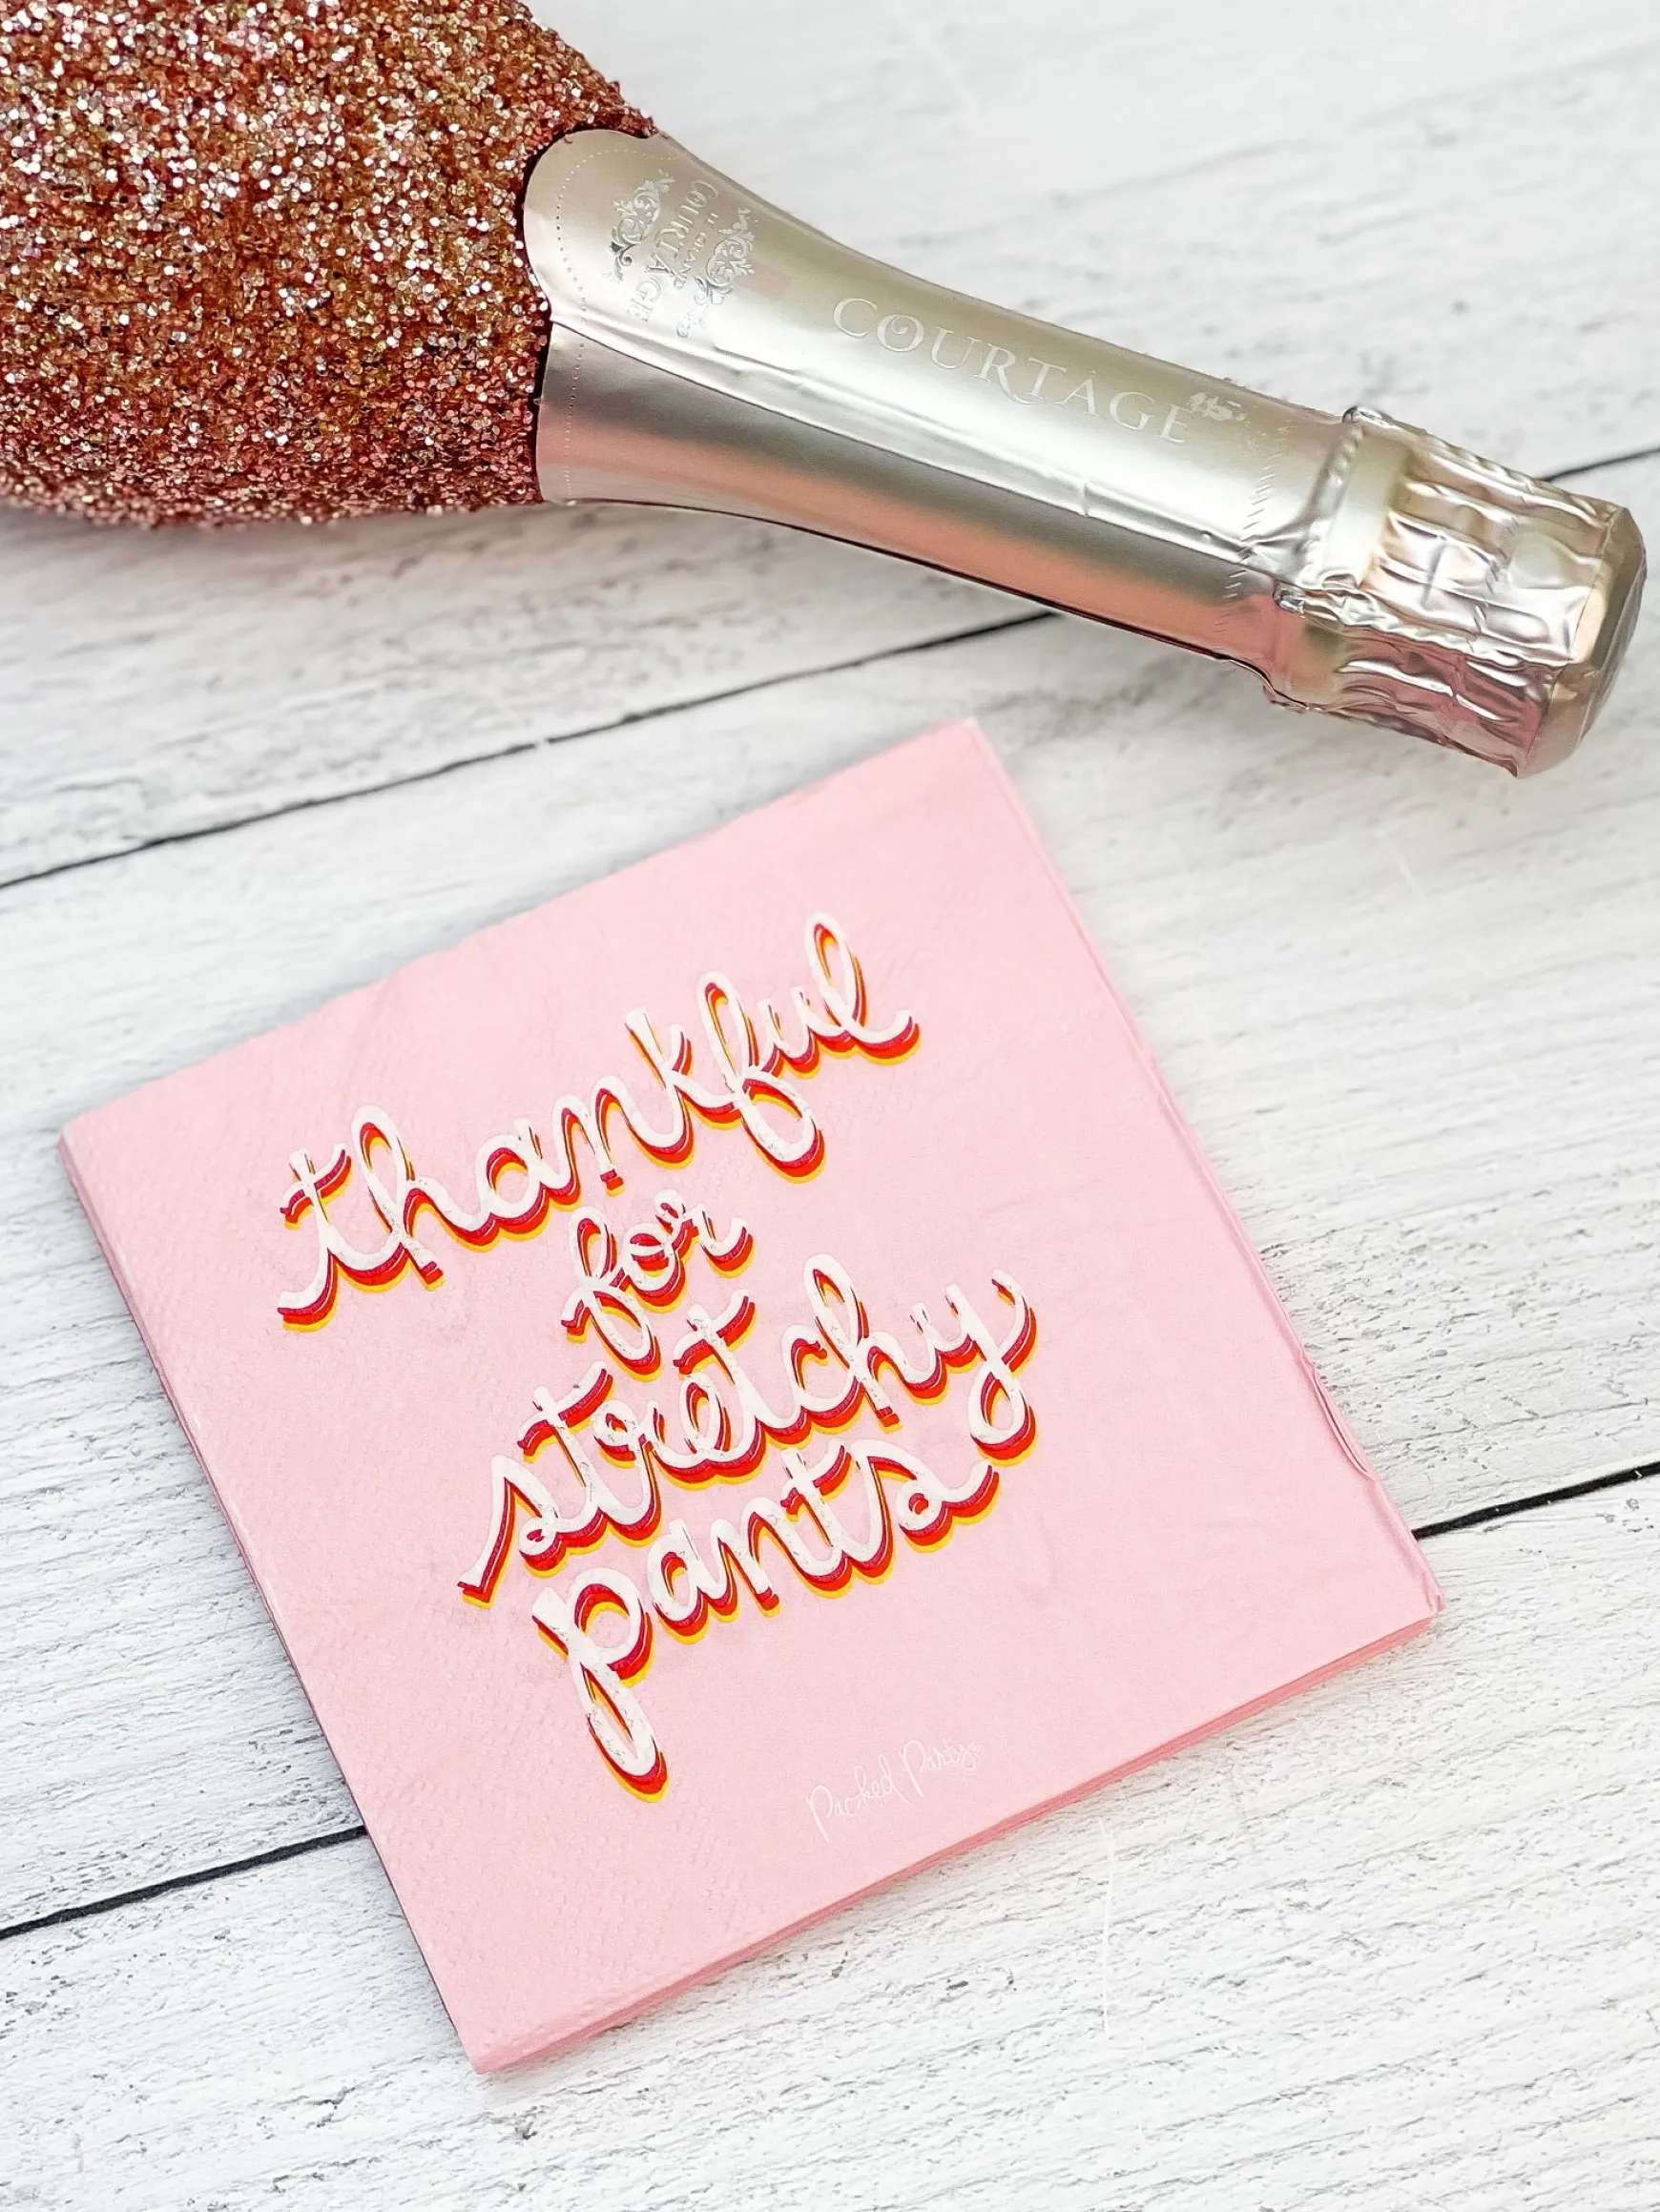 LE GRAND
COURTÂGE
COURTÂGE
thankful
for
stretchy
pants
Packed Party